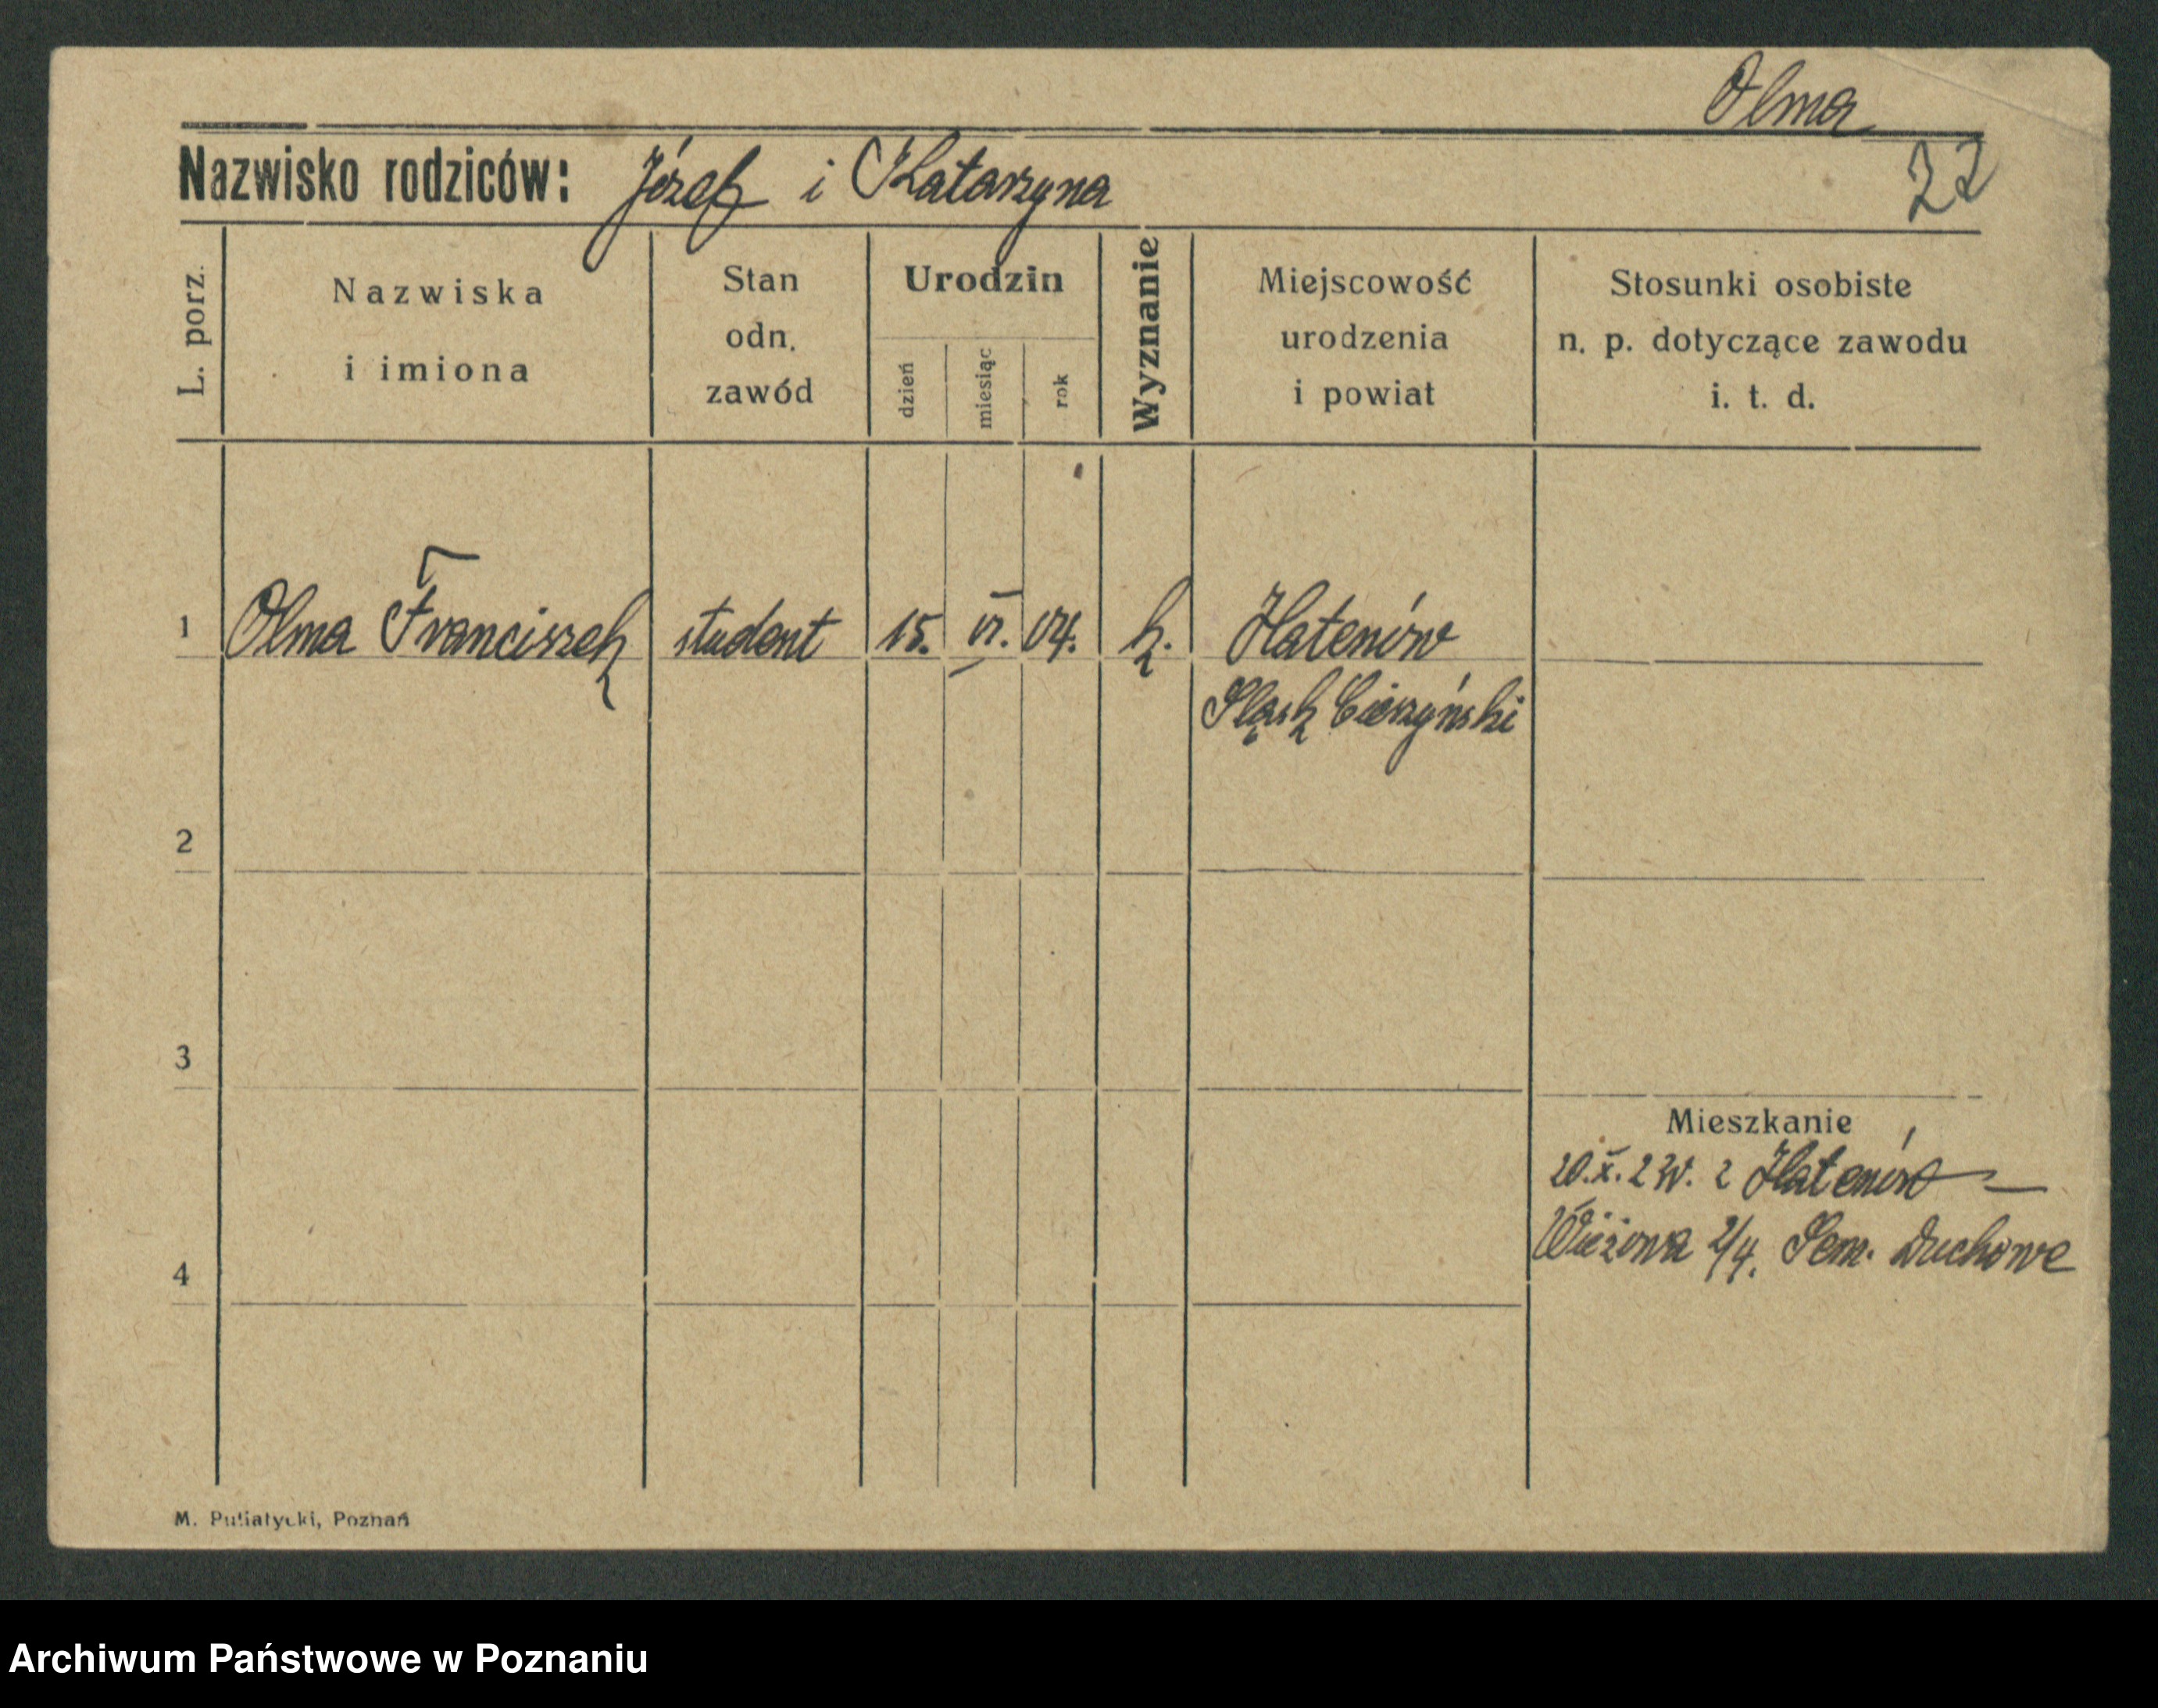 Olma
Nazwisko rodziców: Józef i Katarzyna
22
L. porz.
Nazwiska
i imiona
Stan
odn.
zawód
Urodzin
dzień
miesiąc
rok
Wyznanie
Miejscowość
urodzenia
i powiat
Stosunki osobiste
n. p. dotyczące zawodu
i. t. d.
1 Olma Franciszek student 15. VI. 04. k. Hatenów
Śląsk Cieszyński
2
3
Mieszkanie
20.X.2 z Hatenów
Wieżowa 2/4. Sem. Duchowe
4
M. Putiatycki, Poznań
Archiwum Państwowe w Poznaniu